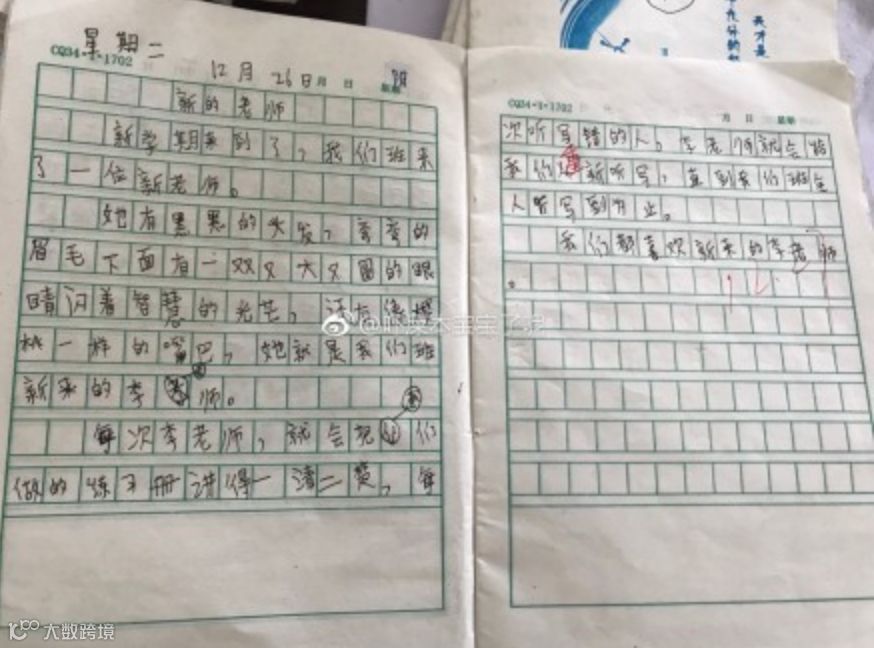 星期二
CQ34-1-1702
12月26日 月 日 星期 阴
新的老师
新学期来到了，我们班来
了一位新老师。
她有黑黑的头发，弯弯的
眉毛下面有一双又大又圆的眼
睛闪着智慧的光芒，还有像樱
桃一样的嘴巴，她就是我们班
新来的李老师。
每次李老师，就会把我们
做的练习册讲得一清二楚，每
CQ34-1-1702
月 日 星期
次听写错的人。李老师就会给
我们重新听写，直到我们班全
人听写到为止。
我们都喜欢新来的李老师
。
天才是
大数跨境